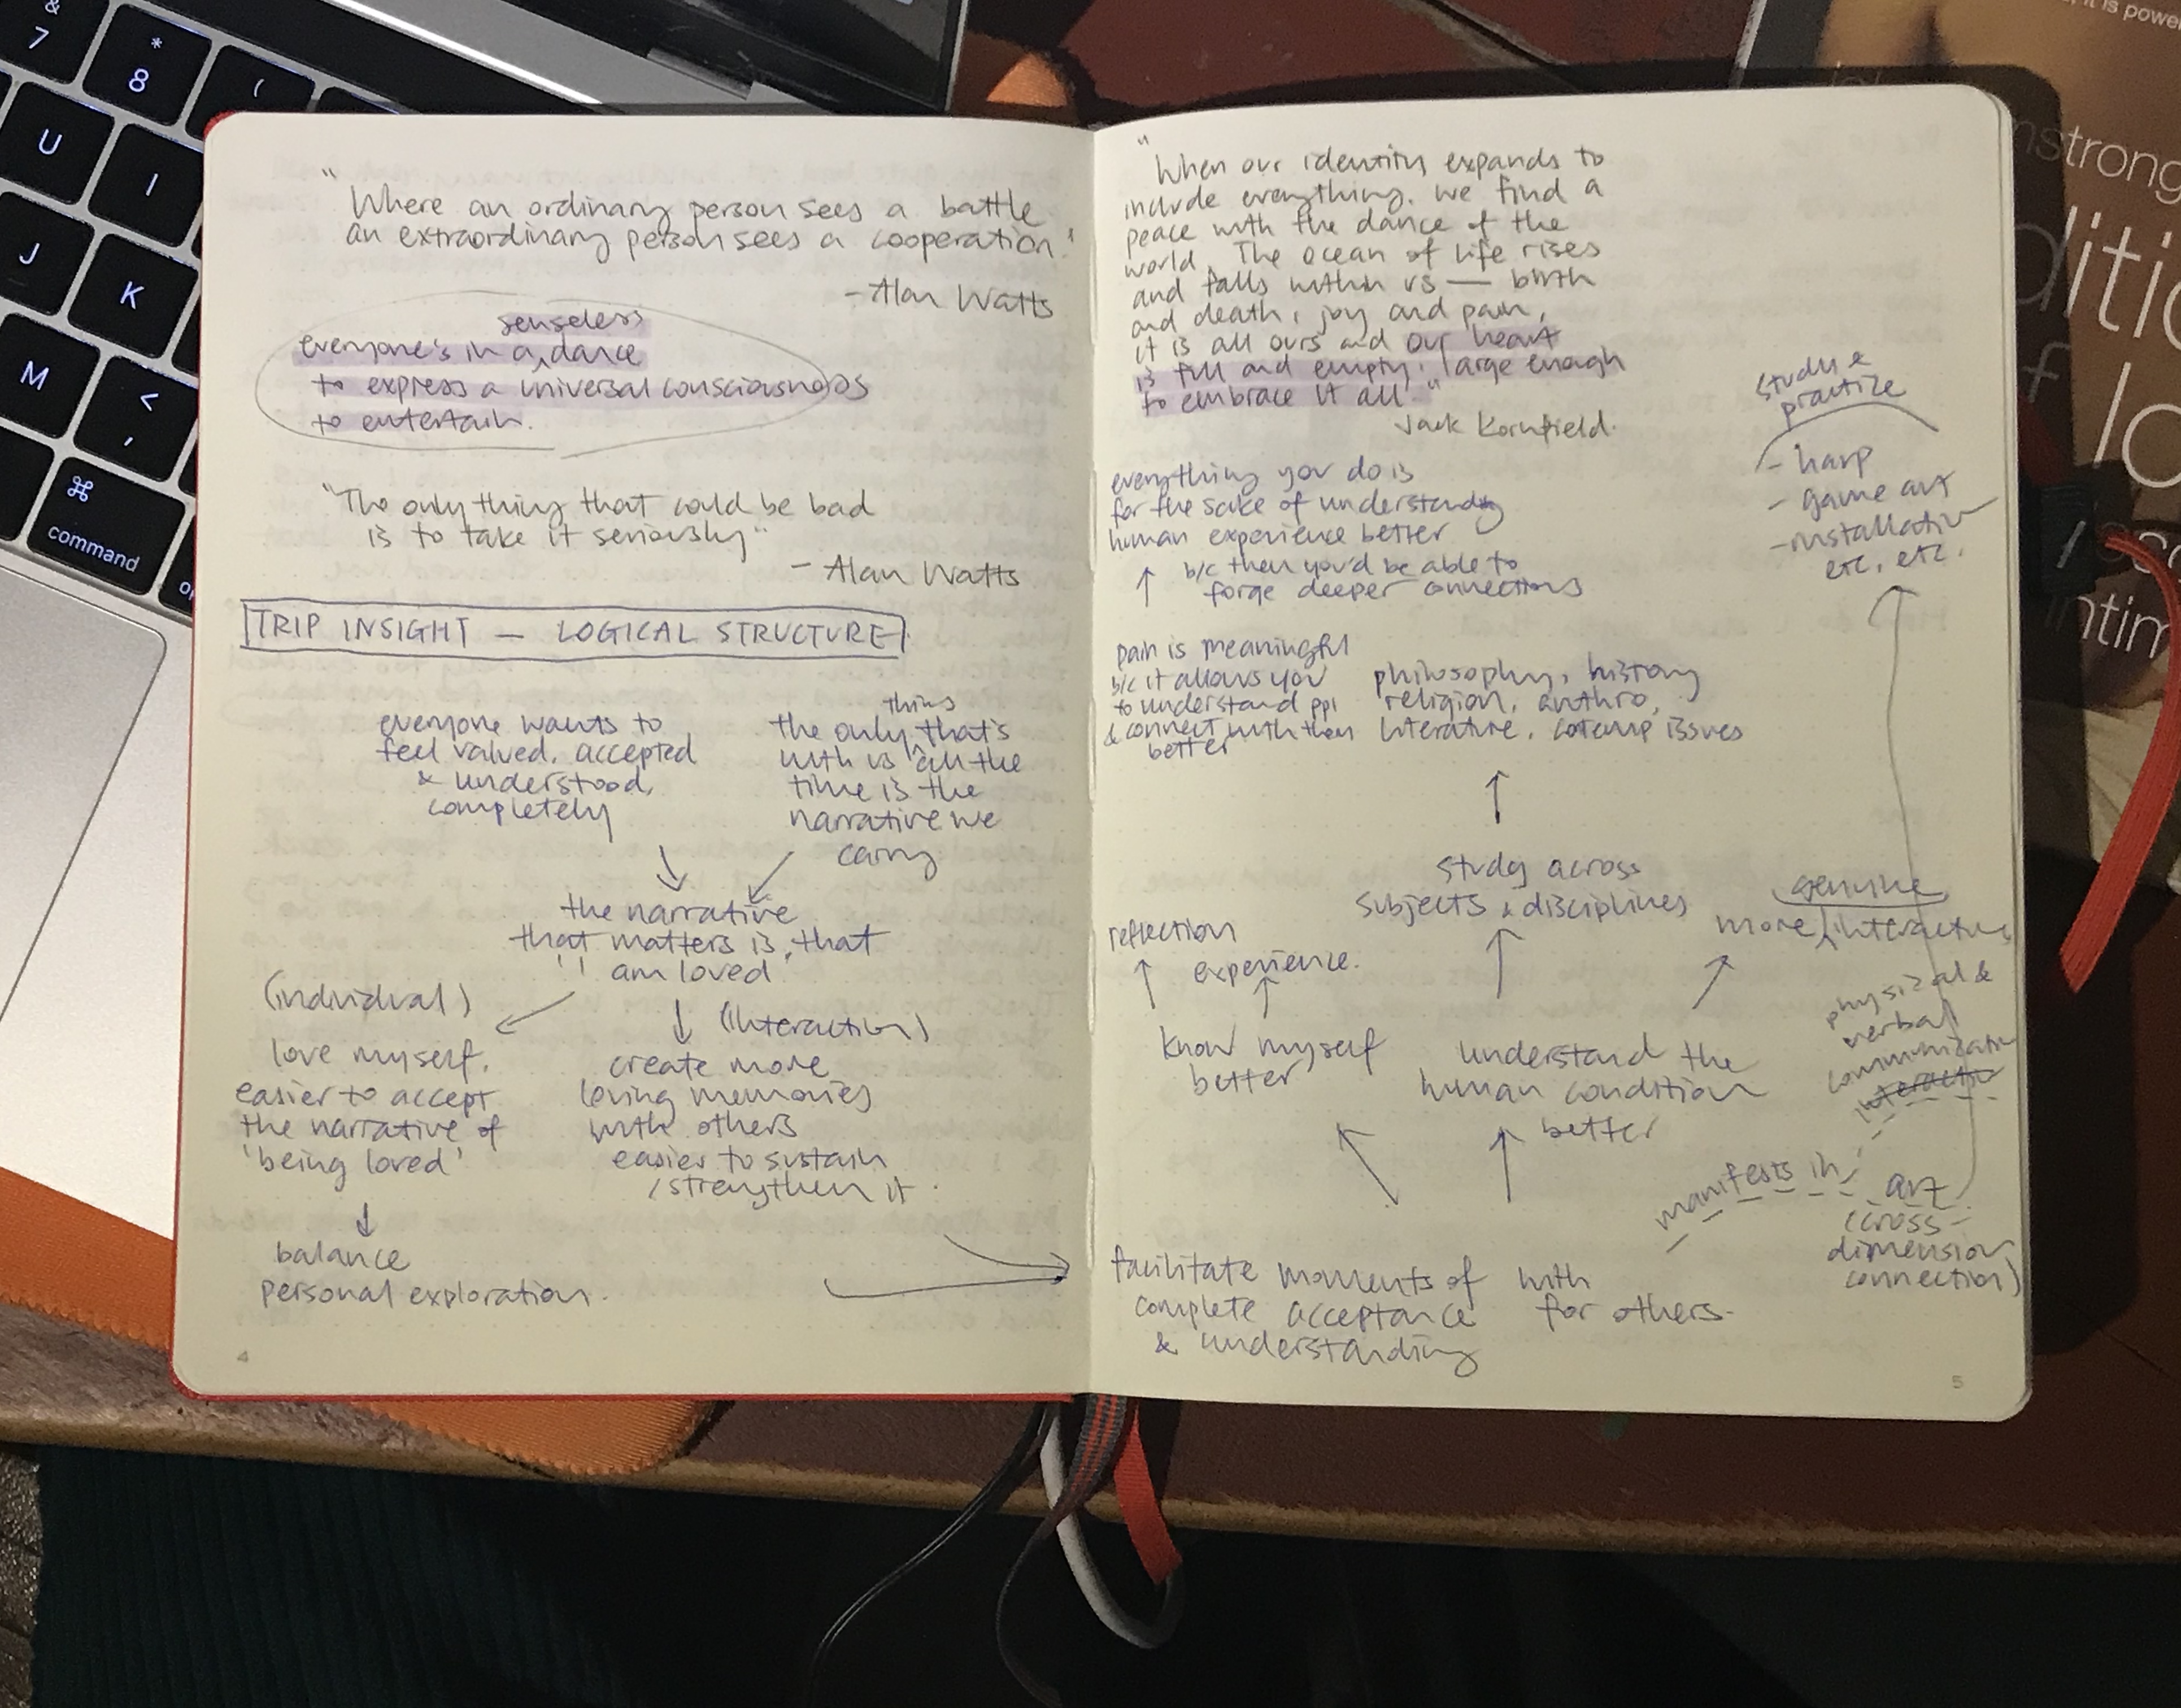 &
7
*
8
(
U
I
J
K
M
<
,
⌘
command
"Where an ordinary person sees a battle
an extraordinary person sees a cooperation."
- Alan Watts
senseless
everyone's in a dance
to express a universal consciousness
to entertain.
"The only thing that could be bad
is to take it seriously"
- Alan Watts
TRIP INSIGHT — LOGICAL STRUCTURE
everyone wants to
feel valued, accepted
& understood,
completely
thing
the only that's
with us all the
time is the
narrative we
carry
the narrative
that matters is, that
'I am loved'
(individual)
love myself.
easier to accept
the narrative of
'being loved'
balance
personal exploration.
(interaction)
create more
loving memories
with others
easier to sustain
/strengthen it.
4
"When our identity expands to
include everything, we find a
peace with the dance of the
world. The ocean of life rises
and falls within us — birth
and death, joy and pain,
it is all ours and our heart
is full and empty, large enough
to embrace it all."
Jack Kornfield.
everything you do is
for the sake of understanding
human experience better
b/c then you'd be able to
forge deeper connections
pain is meaningful
b/c it allows you
to understand ppl
& connect with them
better
philosophy, history
religion, anthro,
literature, contemp issues
study across
subjects & disciplines
reflection
experience.
know myself
better
understand the
human condition
better
genuine
more interactions
physical &
verbal
communication
interactio
manifests in
art
(cross-
dimension
connection)
facilitate moments of
complete acceptance
& understanding
with
for others.
study &
practice
- harp
- game art
- installation
etc, etc.
5
it is power
strong
diti
f lo
ntim